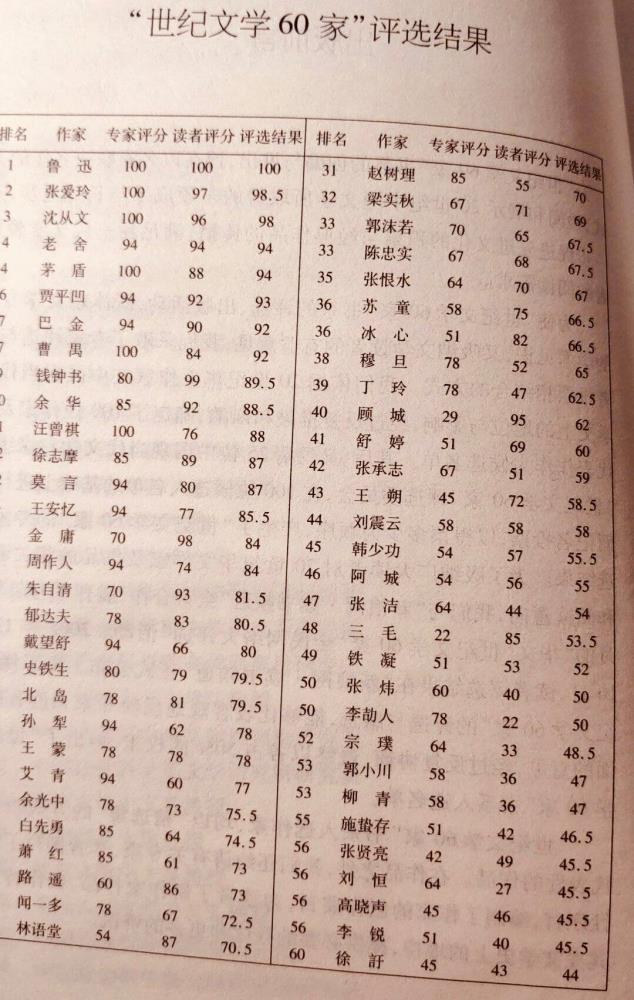 “世纪文学60家”评选结果
排名 作家 专家评分 读者评分 评选结果
1 鲁迅 100 100 100
2 张爱玲 100 97 98.5
3 沈从文 100 96 98
4 老舍 94 94 94
4 茅盾 100 88 94
6 贾平凹 94 92 93
7 巴金 94 90 92
7 曹禺 100 84 92
9 钱钟书 80 99 89.5
余华 85 92 88.5
汪曾祺 100 76 88
徐志摩 85 89 87
莫言 94 80 87
王安忆 94 77 85.5
金庸 70 98 84
周作人 94 74 84
朱自清 70 93 81.5
郁达夫 78 83 80.5
戴望舒 94 66 80
史铁生 80 79 79.5
北岛 78 81 79.5
孙犁 94 62 78
王蒙 78 78 78
艾青 94 60 77
余光中 78 73 75.5
白先勇 85 64 74.5
萧红 85 61 73
路遥 60 86 73
闻一多 78 67 72.5
林语堂 54 87 70.5
排名 作家 专家评分 读者评分 评选结果
31 赵树理 85 55 70
32 梁实秋 67 71 69
33 郭沫若 70 65 67.5
33 陈忠实 67 68 67.5
35 张恨水 64 70 67
36 苏童 58 75 66.5
36 冰心 51 82 66.5
38 穆旦 78 52 65
39 丁玲 78 47 62.5
40 顾城 29 95 62
41 舒婷 51 69 60
42 张承志 67 51 59
43 王朔 45 72 58.5
44 刘震云 58 58 58
45 韩少功 54 57 55.5
46 阿城 54 56 55
47 张洁 64 44 54
48 三毛 22 85 53.5
49 铁凝 51 53 52
50 张炜 60 40 50
50 李劼人 78 22 50
52 宗璞 64 33 48.5
53 郭小川 58 36 47
53 柳青 58 36 47
55 施蛰存 51 42 46.5
56 张贤亮 42 49 45.5
56 刘恒 64 27 45.5
56 高晓声 45 46 45.5
56 李锐 51 40 45.5
60 徐訏 45 43 44